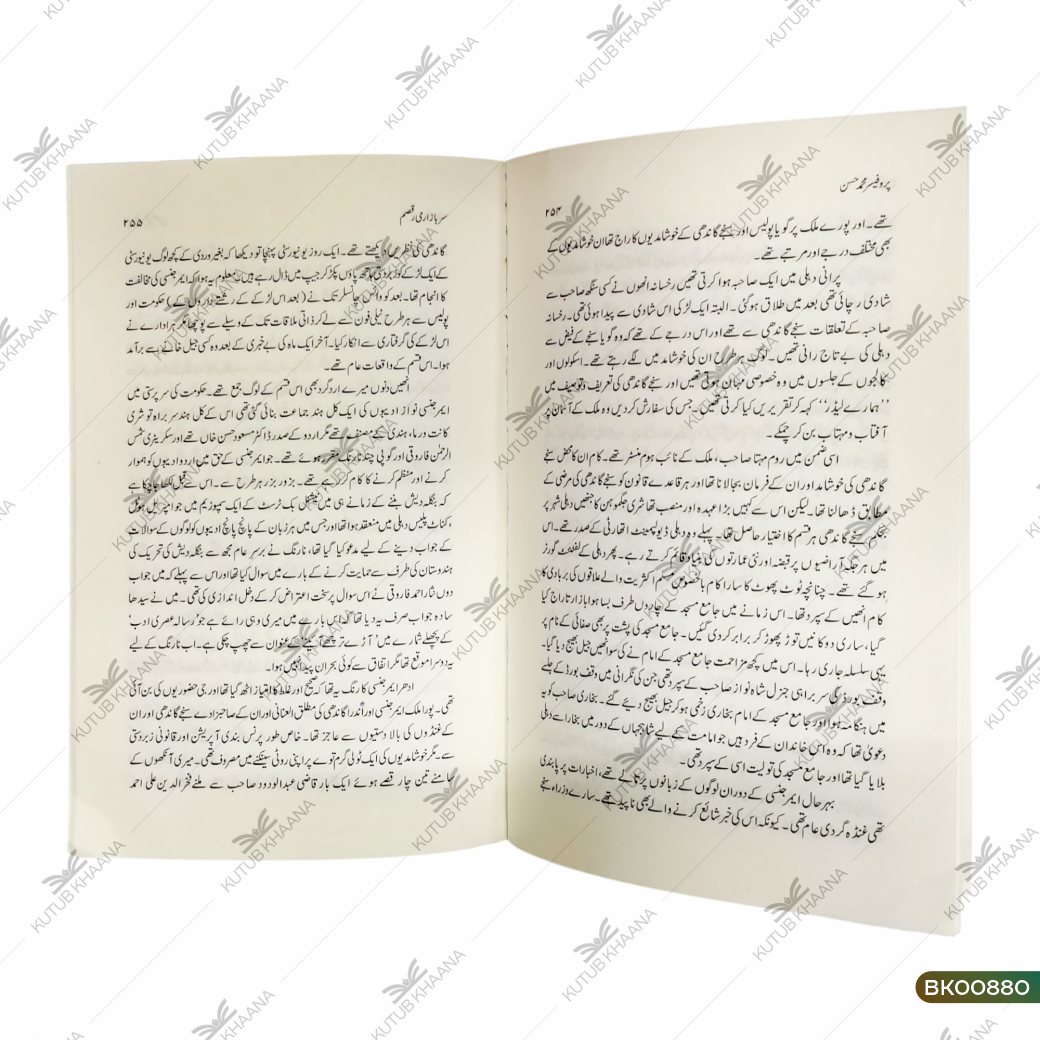 پروفیسر محمد حسن
۲۵۴
تھے۔ اور پورے ملک پر گویا پولیس اور سنجے گاندھی کے خوشامدیوں کا راج تھا ان خوشامدیوں کے
بھی مختلف درجے اور مرتبے تھے۔
پرانی دہلی میں ایک صاحبہ ہوا کرتی تھیں رخسانہ انھوں نے کسی سنگھ صاحب سے
شادی رچائی تھی بعد میں طلاق ہو گئی۔ البتہ ایک لڑکی اس شادی سے پیدا ہوئی تھی۔ رخسانہ
صاحبہ کے تعلقات سنجے گاندھی سے تھے اور اس درجے کے تھے کہ وہ گویا سنجے کے فیض سے
دہلی کی بے تاج رانی تھیں۔ لوگ ہر طرح ان کی خوشامد میں لگے رہتے تھے۔ اسکولوں اور
کالجوں کے جلسوں میں وہ خصوصی مہمان ہوتی تھیں اور سنجے گاندھی کی تعریف و توصیف میں
’’ہمارے لیڈر‘‘ کہہ کر تقریریں کیا کرتی تھیں۔ جس کی سفارش کر دیں وہ ملک کے آسمان پر
آفتاب و مہتاب بن کر چمکے۔
اسی ضمن میں روم مہتا صاحب، ملک کے نائب ہوم منسٹر تھے۔ کام ان کا محض سنجے
گاندھی کی خوشامد اور ان کے فرمان بجا لانا تھا اور ہر قاعدے قانون کو سنجے گاندھی کی مرضی کے
مطابق ڈھالنا تھا۔ لیکن اس سے کہیں بڑا عہدہ اور منصب تھا شری جگموہن کا جنھیں دہلی شہر پر
بحکم سنجے گاندھی ہر قسم کا اختیار حاصل تھا۔ پہلے وہ دہلی ڈیولپمینٹ اتھارٹی کے صدر تھے۔ اس
میں ہر جگہ آراضیوں پر قبضہ اور نئی عمارتوں کی بنیاد قائم کرتے رہے۔ پھر دہلی کے لفٹنٹ گورنر
ہو گئے تھے۔ چنانچہ ٹوٹ پھوٹ کا سارا کام بالخصوص مسلم اکثریت والے علاقوں کی بربادی کا
کام انھیں کے سپرد تھا۔ اس زمانے میں جامع مسجد کے چاروں طرف بسا ہوا بازار تاراج کیا
گیا، ساری دوکانیں توڑ پھوڑ کر برابر کر دی گئیں۔ جامع مسجد کی پشت پر بھی صفائی کے نام پر
یہی سلسلہ جاری رہا۔ اس میں کچھ مزاحمت جامع مسجد کے امام نے کی سو انھیں جیل بھیج دیا گیا۔
وقف بورڈ کی سربراہی جنرل شاہ نواز صاحب کے سپرد تھی جن کی نگرانی میں وقف بورڈ کے جلسے
میں ہنگامہ ہوا اور جامع مسجد کے امام بخاری زخمی ہو کر جیل بھیج دیئے گئے۔ بخاری صاحب کو یہ
دعویٰ تھا کہ وہ اسی خاندان کے فرد ہیں جو امامت کے لیے شاہجہاں کے دور میں بخارا سے دہلی
بلایا گیا تھا اور جامع مسجد کی تولیت اسی کے سپرد تھی۔
بہر حال ایمرجنسی کے دوران لوگوں کے زبانوں پر تالے تھے، اخبارات پر پابندی
تھی غنڈہ گردی عام تھی۔ کیونکہ اس کی خبر شائع کرنے والے بھی ناپید تھے۔ سارے وزراء سنجے
سر بازار می رقصم
۲۵۵
گاندھی کی نظریں دیکھتے تھے۔ ایک روز یونیورسٹی پہنچا تو دیکھا کہ بغیر وردی کے کچھ لوگ یونیورسٹی
کے ایک لڑکے کو زبردستی ہاتھ پاؤں پکڑ کر جیپ میں ڈال رہے ہیں۔ معلوم یہ ہوا کہ ایمرجنسی کی مخالفت
کا انجام تھا۔ بعد کو وائس چانسلر تک نے (بعد اس لڑکے کے رشتے داروں کے) حکومت اور
پولیس سے ہر طرح ٹیلی فون سے لے کر ذاتی ملاقات تک کے وسیلے سے پوچھا مگر ہر ادارے نے
اس لڑکے کی گرفتاری سے انکار کیا۔ آخر ایک ماہ کی بے خبری کے بعد وہ کسی جیل خانے سے برآمد
ہوا۔ اس قسم کے واقعات عام تھے۔
انھیں دنوں میرے ارد گرد بھی اس قسم کے لوگ جمع تھے۔ حکومت کی سرپرستی میں
ایمرجنسی نواز ادیبوں کی ایک کل ہند جماعت بنائی گئی تھی اس کے کل ہند سربراہ تو شری
کانت ورما، ہندی کے مصنف تھے مگر اردو کے صدر ڈاکٹر مسعود حسن خاں تھے اور سکریٹری شمس
الرحمٰن فاروقی اور گوپی چند نارنگ مقرر ہوئے تھے۔ جو ایمرجنسی کے حق میں اردو ادیبوں کو ہموار
کرنے اور منظم کرنے کا کام کر رہے تھے۔ بزور بزر ہر طرح سے۔ اس سے قبل لکھا جا چکا ہے
کہ بنگلہ دیش بننے کے زمانے ہی میں نیشنل بک ٹرسٹ کے ایک سمپوزیم میں جو امپریل ہوٹل
،کناٹ پلیس دہلی میں منعقد ہوا تھا اور جس میں ہر زبان کے پانچ پانچ ادیبوں کو لوگوں کے سوالات
کے جواب دینے کے لیے مدعو کیا گیا تھا، نارنگ نے برسر عام مجھ سے بنگلہ دیش کی تحریک کی
ہندوستان کی طرف سے حمایت کرنے کے بارے میں سوال کیا تھا اور اس سے پہلے کہ میں جواب
دوں نثار احمد فاروقی نے اس سوال پر سخت اعتراض کر کے دخل اندازی کی تھی۔ میں نے سیدھا
سادہ جواب صرف یہ دیا تھا کہ اس بارے میں میری وہی رائے ہے جو رسالہ ’عصری ادب‘
کے پچھلے شمارے میں ’آڑے ترچھے آئینے‘ کے عنوان سے چھپ چکی ہے۔ اب نارنگ کے لیے
یہ دوسرا موقع تھا مگر اتفاق سے کوئی بحران پیدا نہیں ہوا۔
ادھر ایمرجنسی کا رنگ یہ تھا کہ صحیح اور غلط کا امتیاز اٹھ گیا تھا اور جی حضوریوں کی بن آئی
تھی۔ پورا ملک ایمرجنسی اور اندرا گاندھی کی مطلق العنانی اور ان کے صاحبزادے سنجے گاندھی اور ان
کے غنڈوں کی بالا دستیوں سے عاجز تھا۔ خاص طور پر نس بندی آپریشن اور قانونی زبردستی
سے۔ مگر خوشامدیوں کی ایک ٹولی گرم توے پر اپنی روٹی سینکنے میں مصروف تھی۔ میری آنکھوں کے
سامنے تین چار قصے ہوئے ایک بار قاضی عبدالودود صاحب سے ملنے فخر الدین علی احمد
KUTUB KHAANA
BK00880